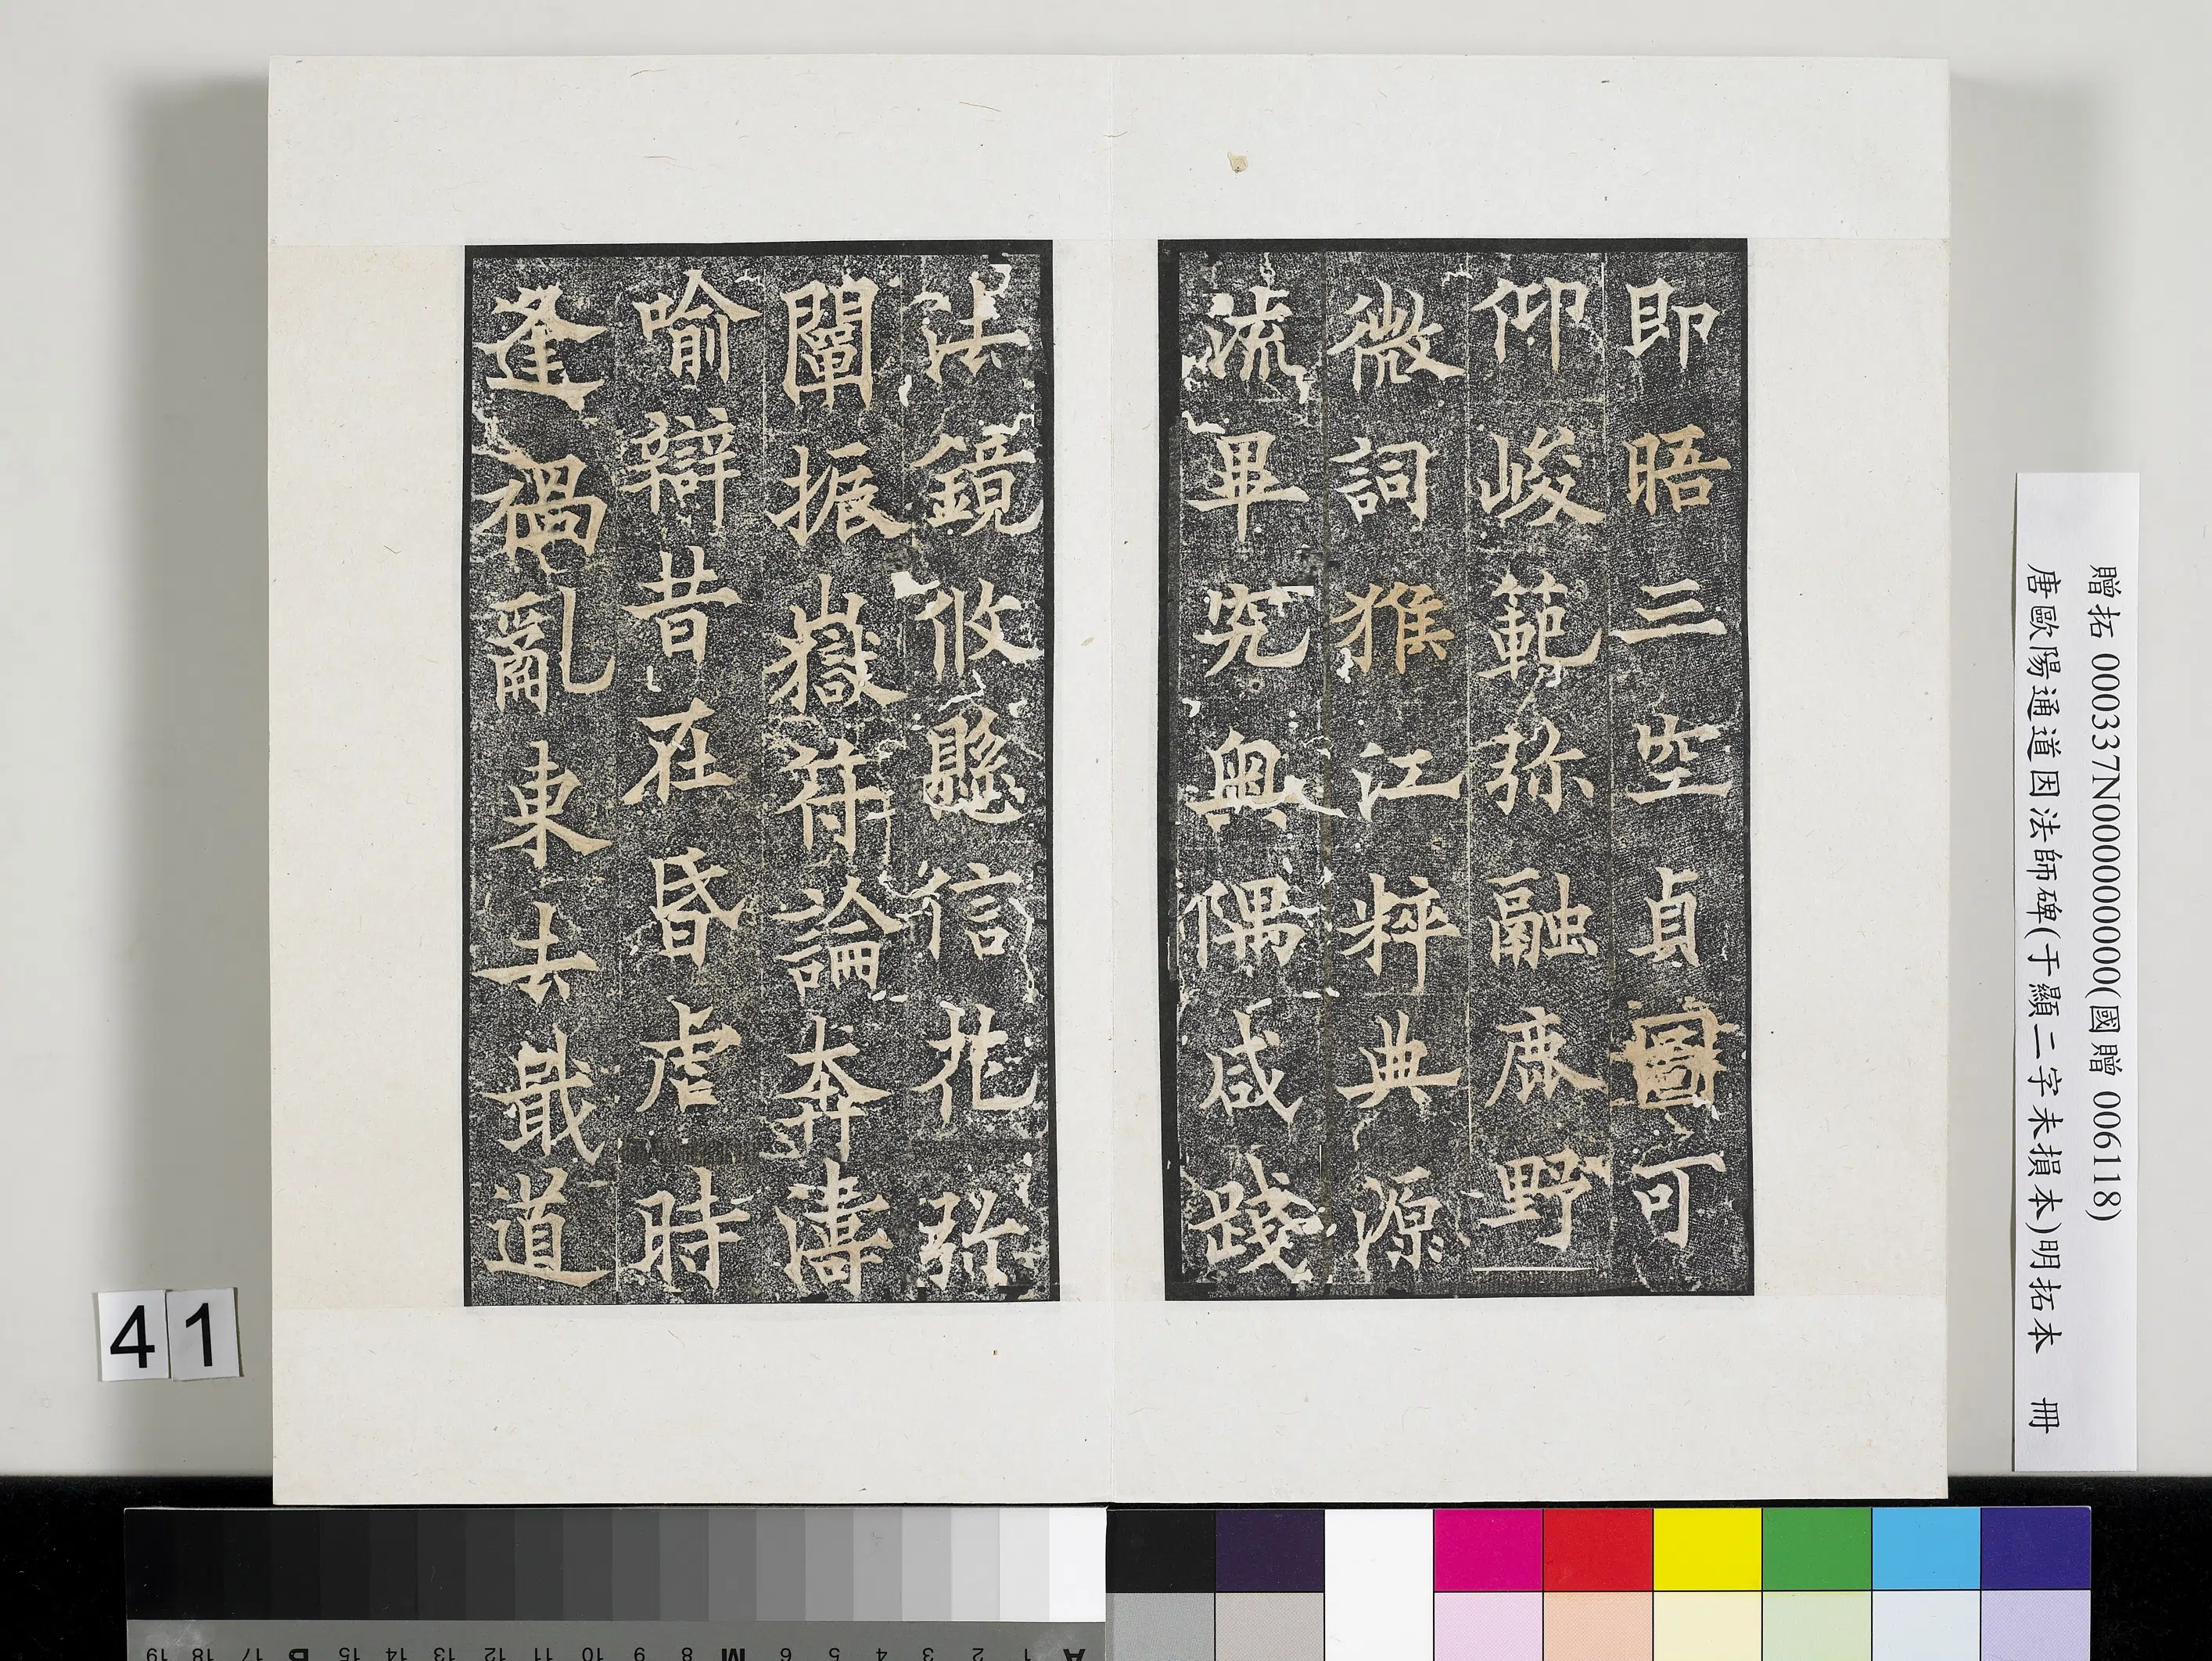 即晤三空貞圖可
仰峻範弥融鹿野
微詞猴江粹典源
流畢究奧隅咸踐
法鏡攸懸信花弥
闡振嶽苻論奔濤
喻辯昔在昏虐時
逢禍亂東去戢道
贈拓 000337N000000000(國贈 006118)
唐歐陽通道因法師碑(于顯二字未損本)明拓本 冊
41
A 1 2 3 4 5 6 M 8 9 10 11 12 13 14 15 B 17 18 19